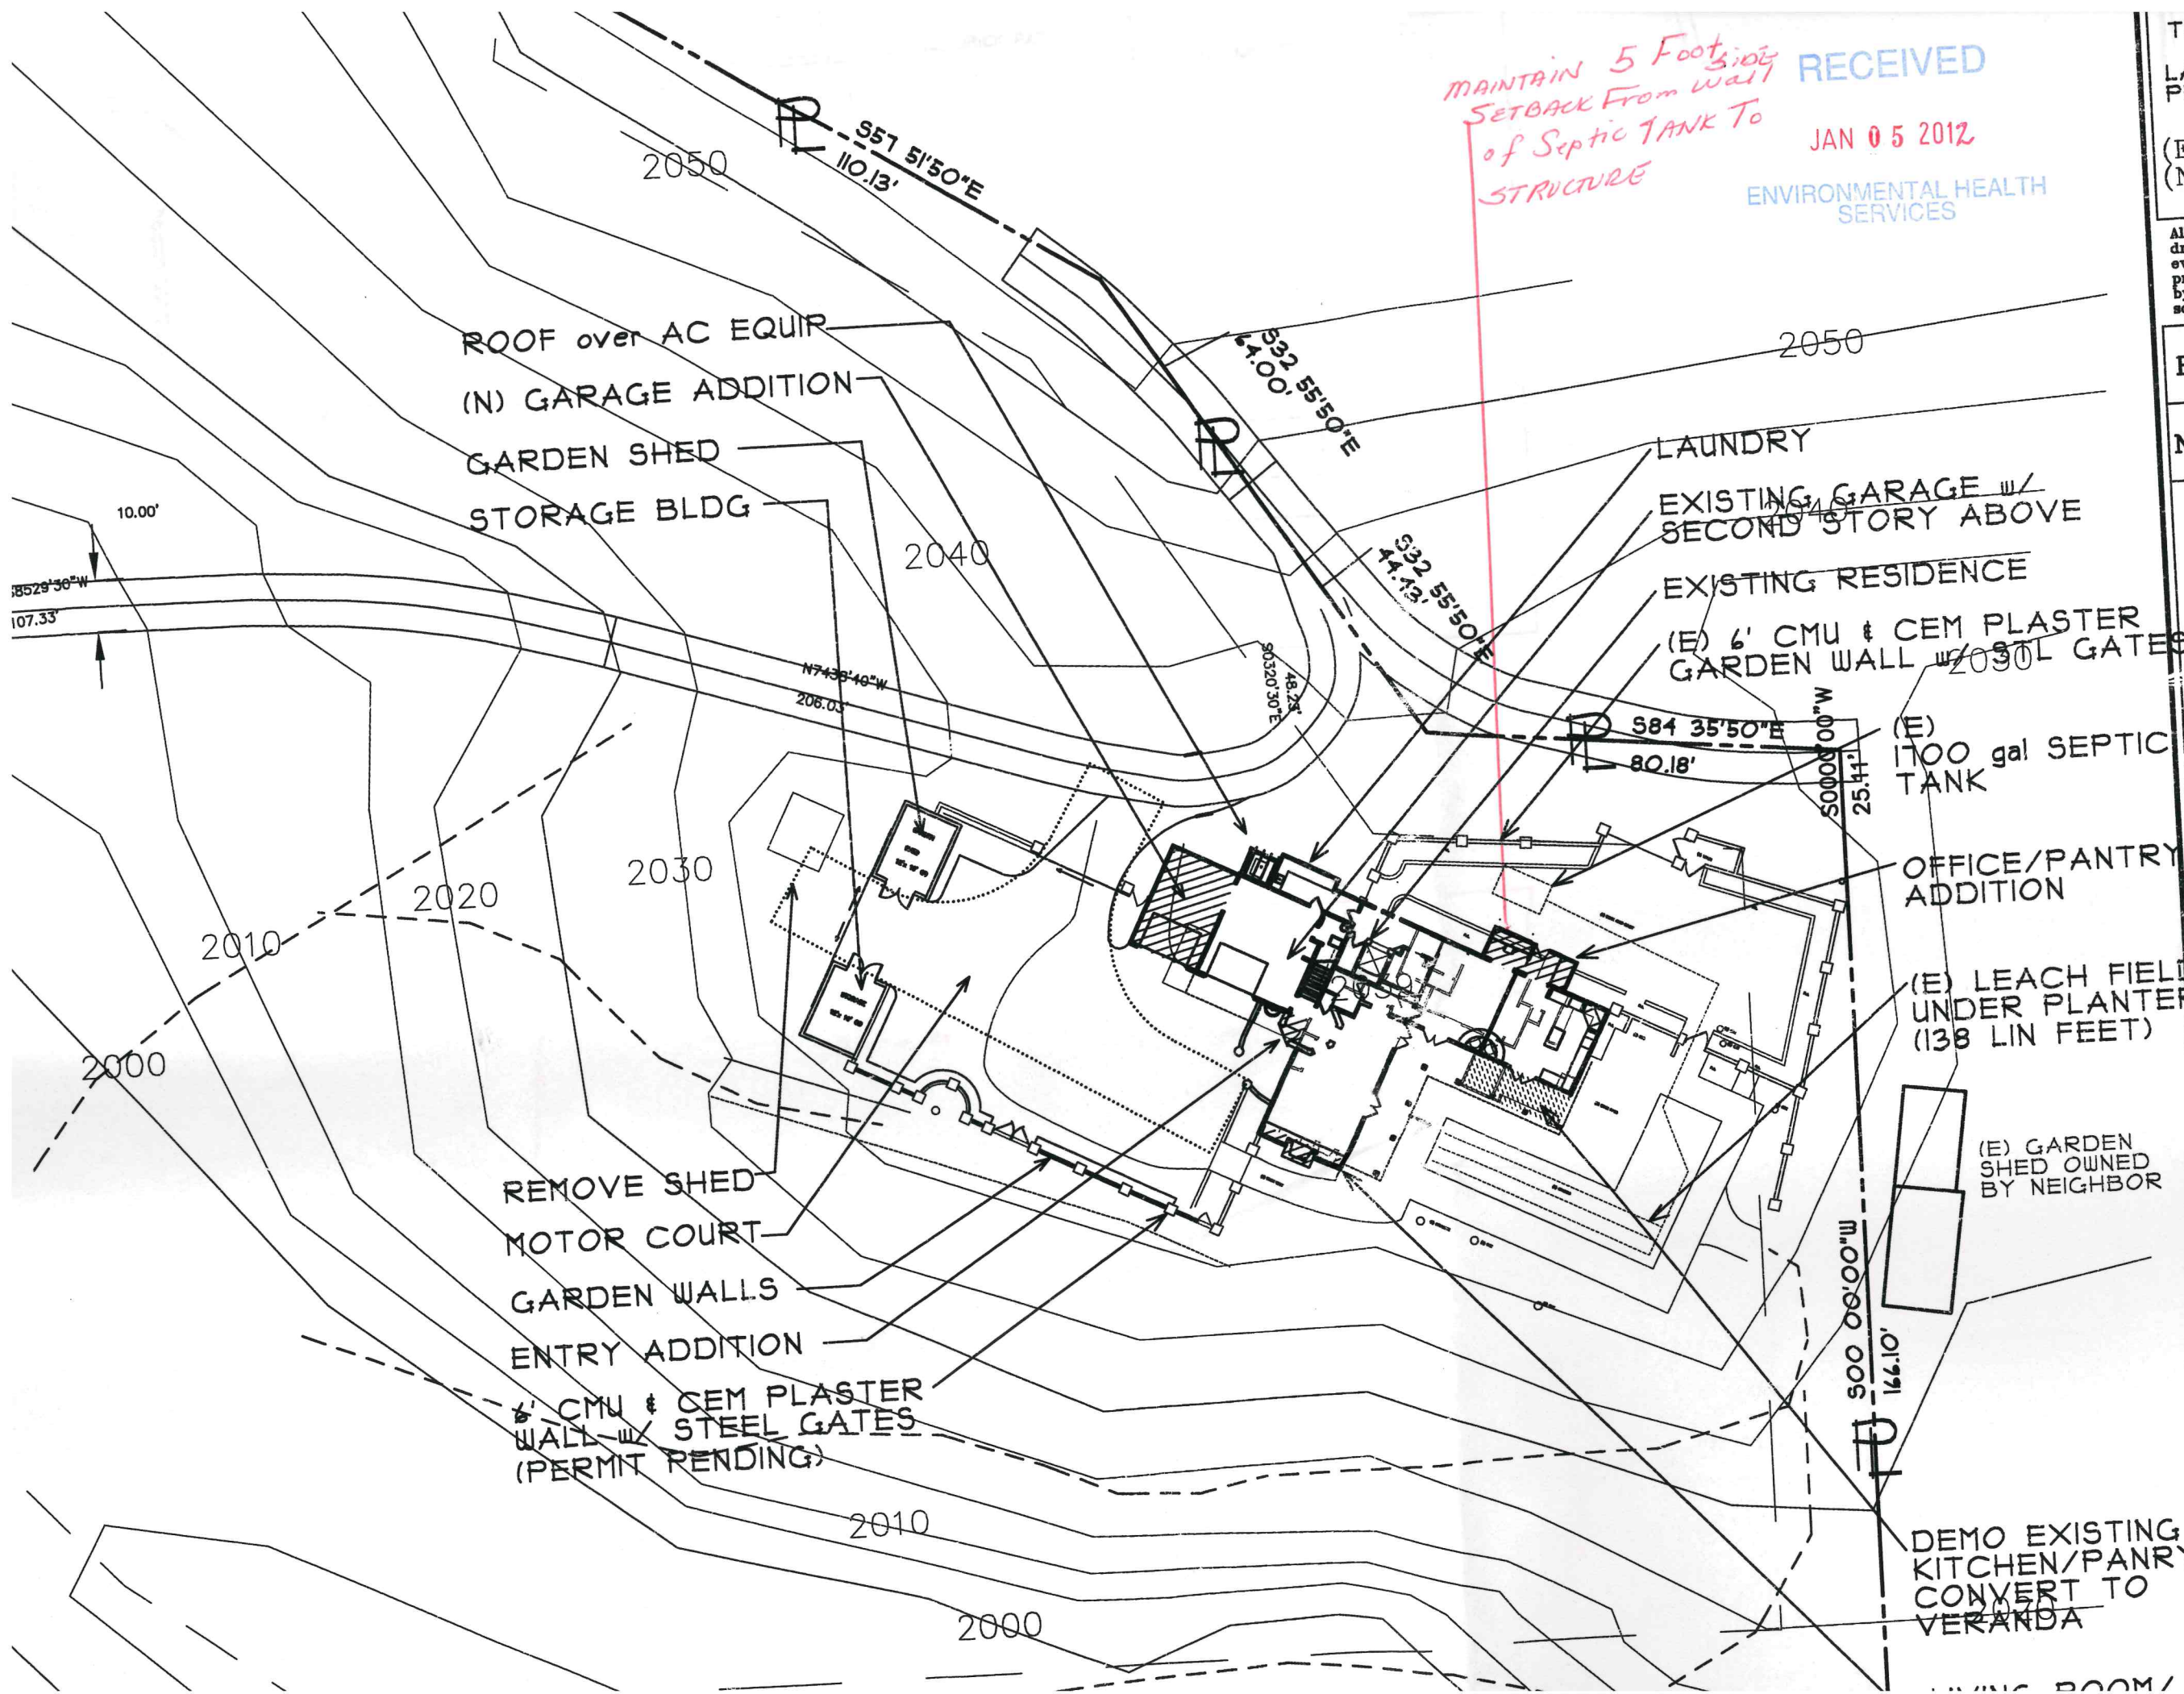 MAINTAIN 5 Foot side
SETBACK From wall
of Septic TANK To
STRUCTURE
RECEIVED
JAN 05 2012
ENVIRONMENTAL HEALTH
SERVICES
S57 51'50"E
110.13'
2050
2050
S32 55'50"E
64.00'
S32 55'50"E
44.43'
ROOF over AC EQUIP
(N) GARAGE ADDITION
GARDEN SHED
STORAGE BLDG
LAUNDRY
EXISTING GARAGE w/
SECOND STORY ABOVE
2040
EXISTING RESIDENCE
(E) 6' CMU & CEM PLASTER
GARDEN WALL w/ STL GATES
2030
10.00'
S8529'30"W
107.33'
2040
N7438'40"W
206.03'
S0320'30"E
48.23'
S84 35'50"E
80.18'
S0000'00"W
25.11'
(E)
1700 gal SEPTIC
TANK
OFFICE/PANTRY
ADDITION
(E) LEACH FIELD
UNDER PLANTER
(138 LIN FEET)
2030
2020
2010
2000
(E) GARDEN
SHED OWNED
BY NEIGHBOR
REMOVE SHED
MOTOR COURT
GARDEN WALLS
ENTRY ADDITION
6' CMU & CEM PLASTER
WALL w/ STEEL GATES
(PERMIT PENDING)
S00 00'00"W
166.10'
2010
2000
DEMO EXISTING
KITCHEN/PANRY
CONVERT TO
VERANDA
2020
LIVING ROOM/